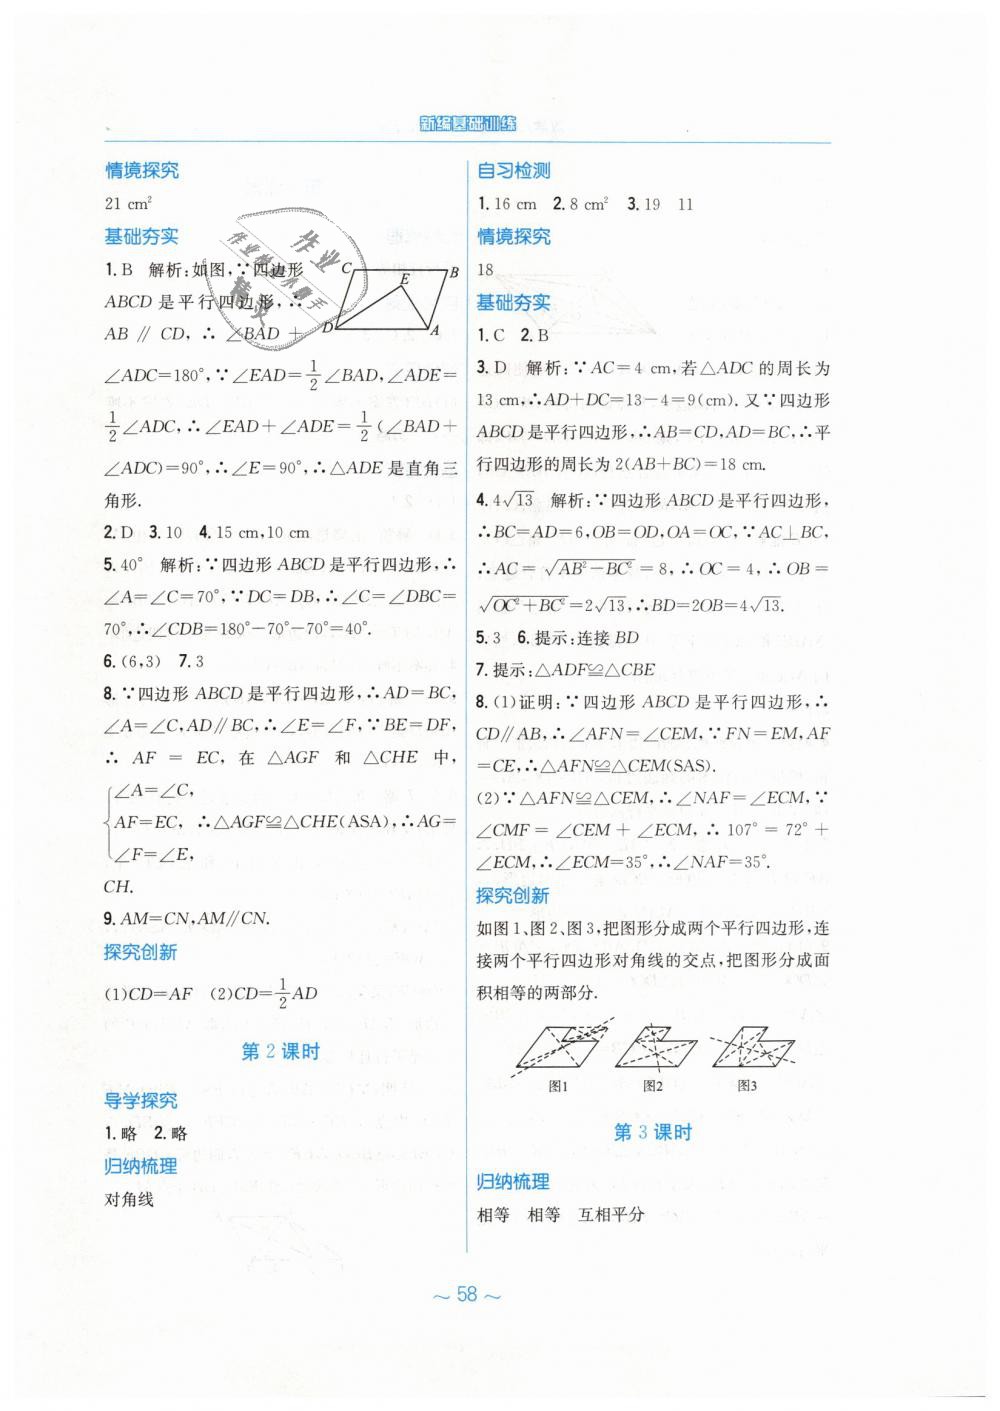 新编基础训练
情境探究
21 cm²
基础夯实
1. B 解析:如图,∵四边形
ABCD 是平行四边形,∴
AB ∥ CD, ∴ ∠BAD +
∠ADC=180°,∵∠EAD=1/2∠BAD,∠ADE=
1/2∠ADC,∴∠EAD+∠ADE=1/2(∠BAD+
∠ADC)=90°,∴∠E=90°,∴△ADE是直角三
角形.
C B E D A
作业
作业检查小帮手
精灵
2. D 3. 10 4. 15 cm,10 cm
5. 40° 解析:∵四边形 ABCD 是平行四边形,∴
∠A=∠C=70°,∵DC=DB,∴∠C=∠DBC=
70°,∴∠CDB=180°-70°-70°=40°.
6. (6,3) 7. 3
8. ∵四边形 ABCD 是平行四边形,∴AD=BC,
∠A=∠C,AD∥BC,∴∠E=∠F,∵BE=DF,
∴ AF = EC, 在 △AGF 和 △CHE 中,
∠A=∠C,
AF=EC, ∴△AGF≌△CHE(ASA),∴AG=
∠F=∠E,
CH.
9. AM=CN,AM∥CN.
探究创新
(1)CD=AF (2)CD=1/2AD
第 2 课时
导学探究
1. 略 2. 略
归纳梳理
对角线
自习检测
1. 16 cm 2. 8 cm² 3. 19 11
情境探究
18
基础夯实
1. C 2. B
3. D 解析:∵AC=4 cm,若△ADC 的周长为
13 cm,∴AD+DC=13-4=9(cm). 又∵四边形
ABCD是平行四边形,∴AB=CD,AD=BC,∴平
行四边形的周长为 2(AB+BC)=18 cm.
4. 4√13 解析:∵四边形 ABCD 是平行四边形,
∴BC=AD=6,OB=OD,OA=OC,∵AC⊥BC,
∴AC=√(AB²-BC²)=8,∴OC=4,∴OB=
√(OC²+BC²)=2√13,∴BD=2OB=4√13.
5. 3 6. 提示:连接 BD
7. 提示:△ADF≌△CBE
8. (1)证明:∵四边形 ABCD 是平行四边形,∴
CD∥AB,∴∠AFN=∠CEM,∵FN=EM,AF
=CE,∴△AFN≌△CEM(SAS).
(2)∵△AFN≌△CEM,∴∠NAF=∠ECM,∵
∠CMF = ∠CEM + ∠ECM, ∴ 107° = 72° +
∠ECM,∴∠ECM=35°,∴∠NAF=35°.
探究创新
如图 1、图 2、图 3,把图形分成两个平行四边形,连
接两个平行四边形对角线的交点,把图形分成面
积相等的两部分.
图1 图2 图3
第 3 课时
归纳梳理
相等 相等 互相平分
～ 58 ～